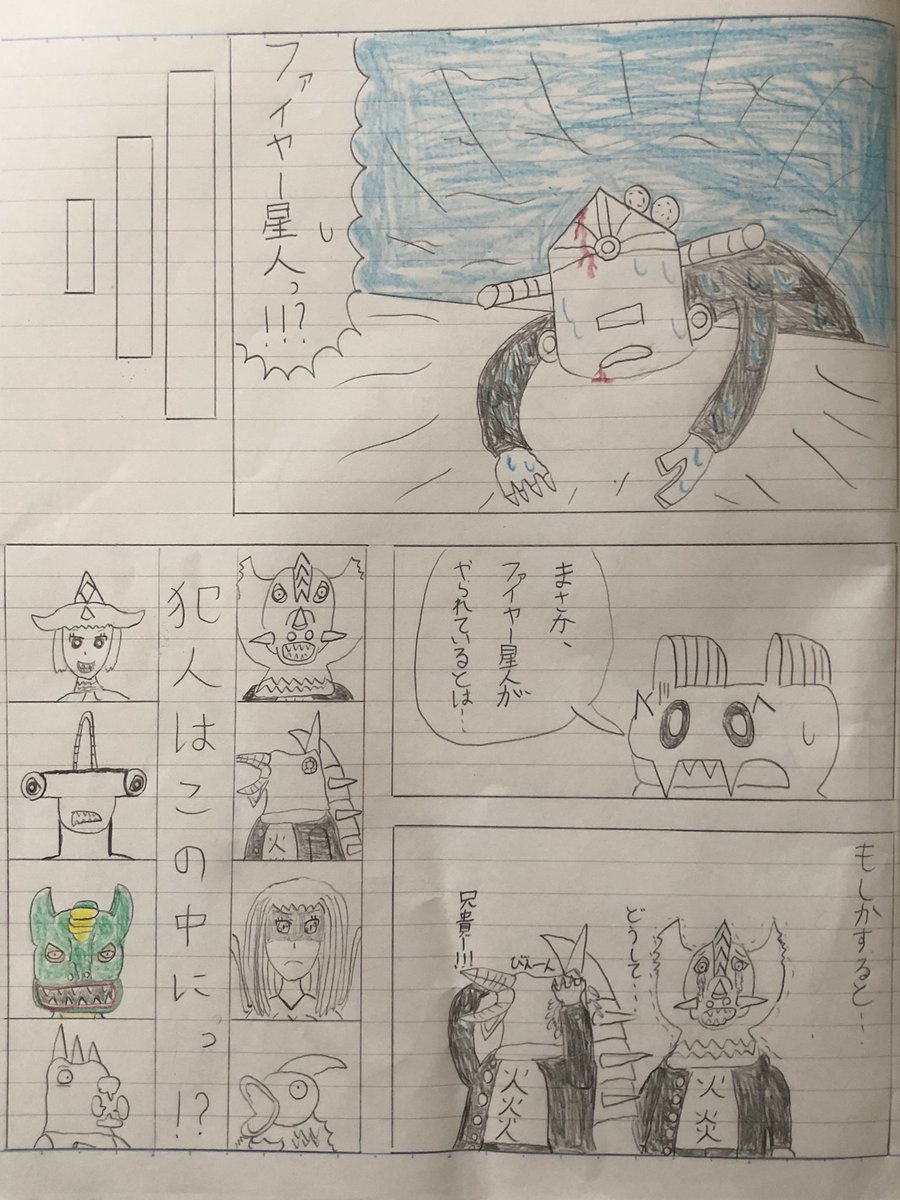 ファイヤー星人っ!!!?
まさか、
ファイヤー星人が
やられているとは…
もしかすると…
どうして…
火炎
びえーん
兄貴ー!!!
火火火
火
犯人はこの中にっ!?